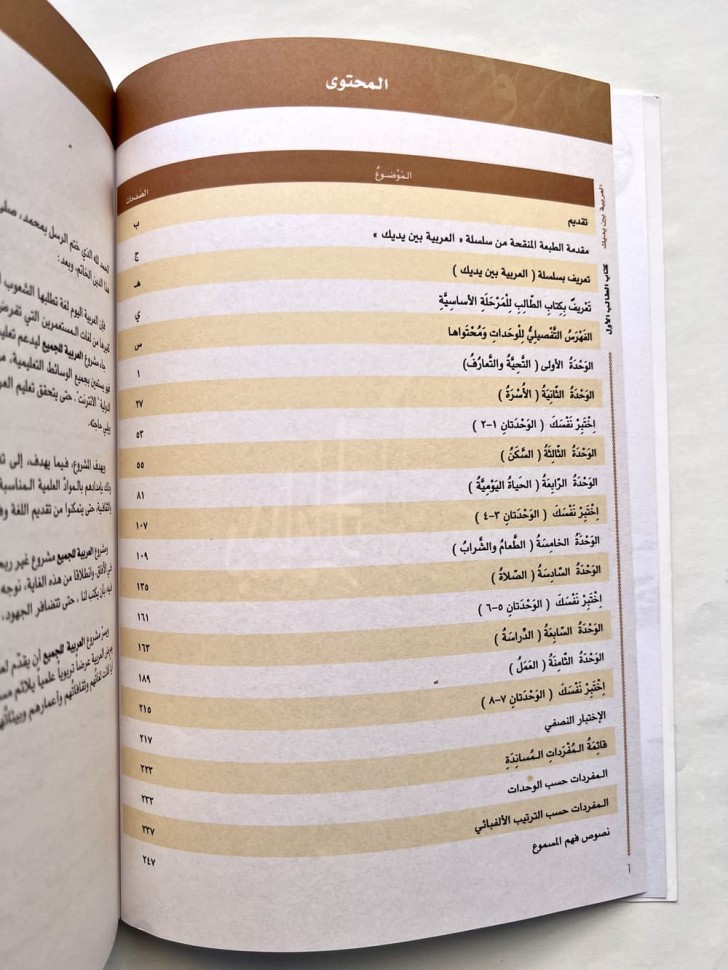 المحتوى
المَوْضوعُ الصفحات
تقديم ب
مقدمة الطبعة المنقحة من سلسلة « العربية بين يديك » ج
تعريف بسلسلة ( العربية بين يديك ) هـ
تَعْرِيفٌ بِكِتابِ الطّالِبِ لِلْمَرْحَلَةِ الأساسِيَّةِ ي
الفِهْرَسُ التَّفْصِيلِيُّ لِلْوِحَداتِ وَمُحْتَواها س
الوَحْدَةُ الأولى (التَّحِيَّةُ والتَّعارُفُ) ١
الوَحْدَةُ الثّانِيَةُ ( الأُسْرَةُ ) ٢٧
اِخْتَبِرْ نَفْسَكَ ( الوَحْدَتانِ ١-٢ ) ٥٣
الوَحْدَةُ الثّالِثَةُ ( السَّكَنُ ) ٥٥
الوَحْدَةُ الرّابِعَةُ ( الحَياةُ اليَوْمِيَّةُ ) ٨١
اِخْتَبِرْ نَفْسَكَ ( الوَحْدَتانِ ٣-٤ ) ١٠٧
الوَحْدَةُ الخامِسَةُ ( الطَّعامُ والشَّرابُ ) ١٠٩
الوَحْدَةُ السّادِسَةُ ( الصَّلاةُ ) ١٣٥
اِخْتَبِرْ نَفْسَكَ ( الوَحْدَتانِ ٥-٦ ) ١٦١
الوَحْدَةُ السّابِعَةُ ( الدِّراسَةُ ) ١٦٣
الوَحْدَةُ الثّامِنَةُ ( العَمَلُ ) ١٨٩
اِخْتَبِرْ نَفْسَكَ ( الوَحْدَتانِ ٧-٨ ) ٢١٥
الإختبار النصفي ٢١٧
قائِمَةُ المُفْرَداتِ المُسانِدَةِ ٢٣٣
المفردات حسب الوحدات ٢٣٣
المفردات حسب الترتيب الألفبائي ٢٣٧
نصوص فهم المسموع ٢٤٧
أ
العربية بين يديك
كتاب الطالب الأول
الحمد لله الذي ختم الرسل بمحمد، صلى
هذا الدين الخاتم، وبعد:
فإن العربية اليوم لغة تطلبها الشعوب
كغيرها من لغات المستعمرين التي تفرض
جاء مشروع العربية للجميع ليدعم تعليم
بجميع الوسائط التعليمية،
الدولية "الانترنت". حتى يتحقق تعليم
حاجته.
ويهدف المشروع، فيما يهدف، إلى
وذلك بإمدادهم بالموادّ العلمية المناسبة
والثقافية، حتى يتمكنوا من تقديم اللغة
ومشروع العربية للجميع مشروع غير
في الآفاق، وانطلاقا من هذه الغاية، نوجه
فيه، بأن يكتب لنا ، حتى تتضافر الجهود،
ويسرّ مشروع العربية للجميع أن يقدّم
العربية عرضا تربويا علميا يلائم
لغاتُهم وثقافاتُهم وأعمارهم